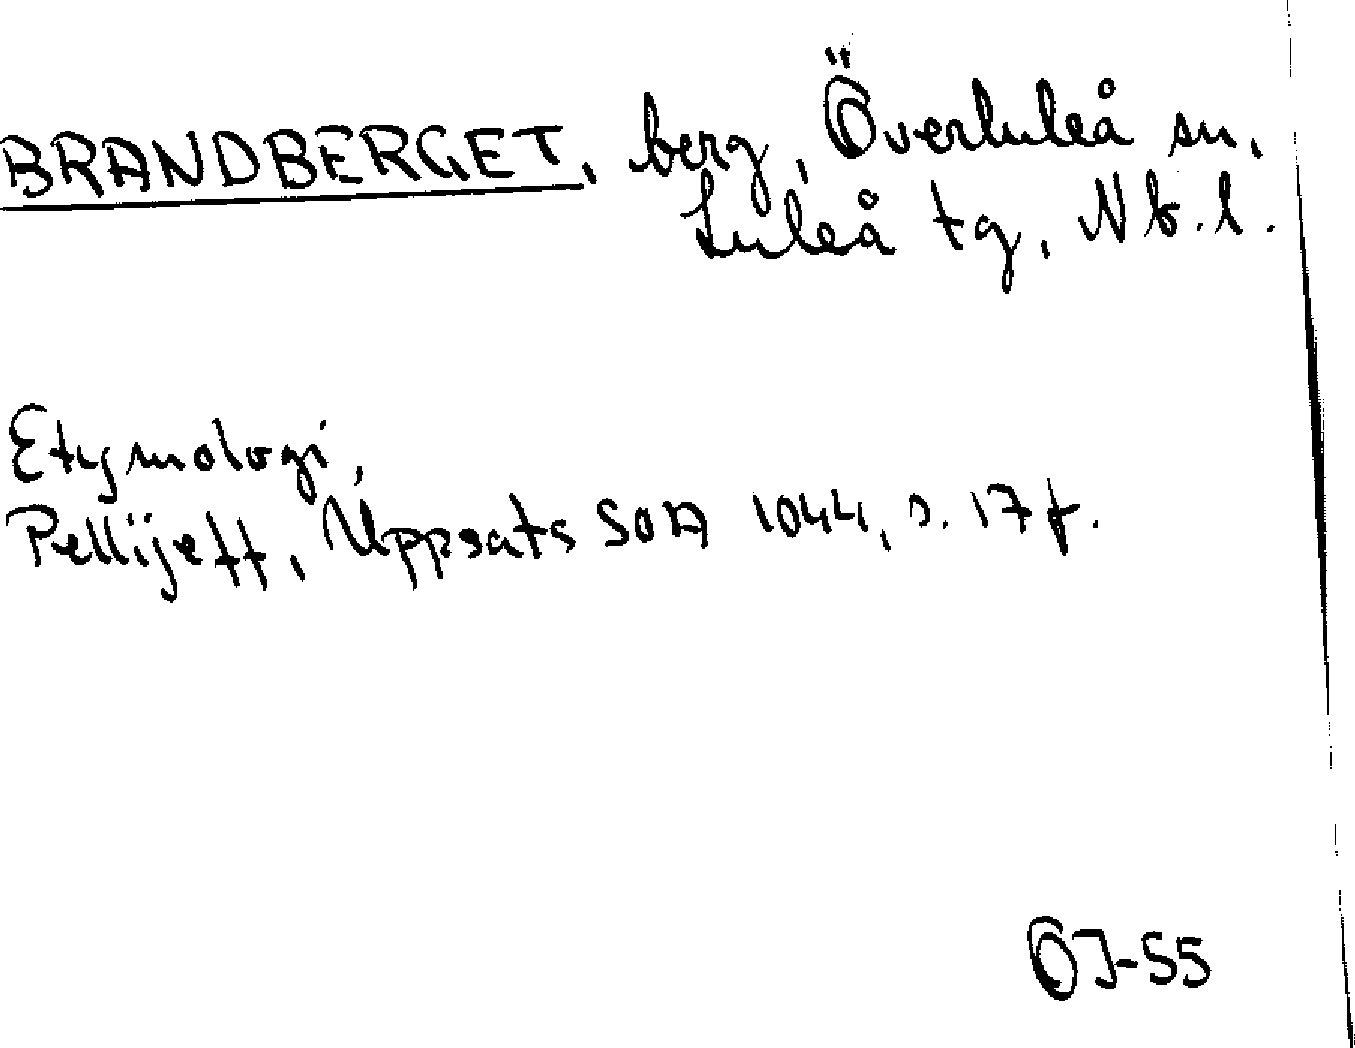 BRANDBERGET, berg, Överluleå sn,
Luleå tg, Nb.l.
Etymologi,
Pellijeff, Uppsats SOA 1044, s. 17 f.
OJ-55